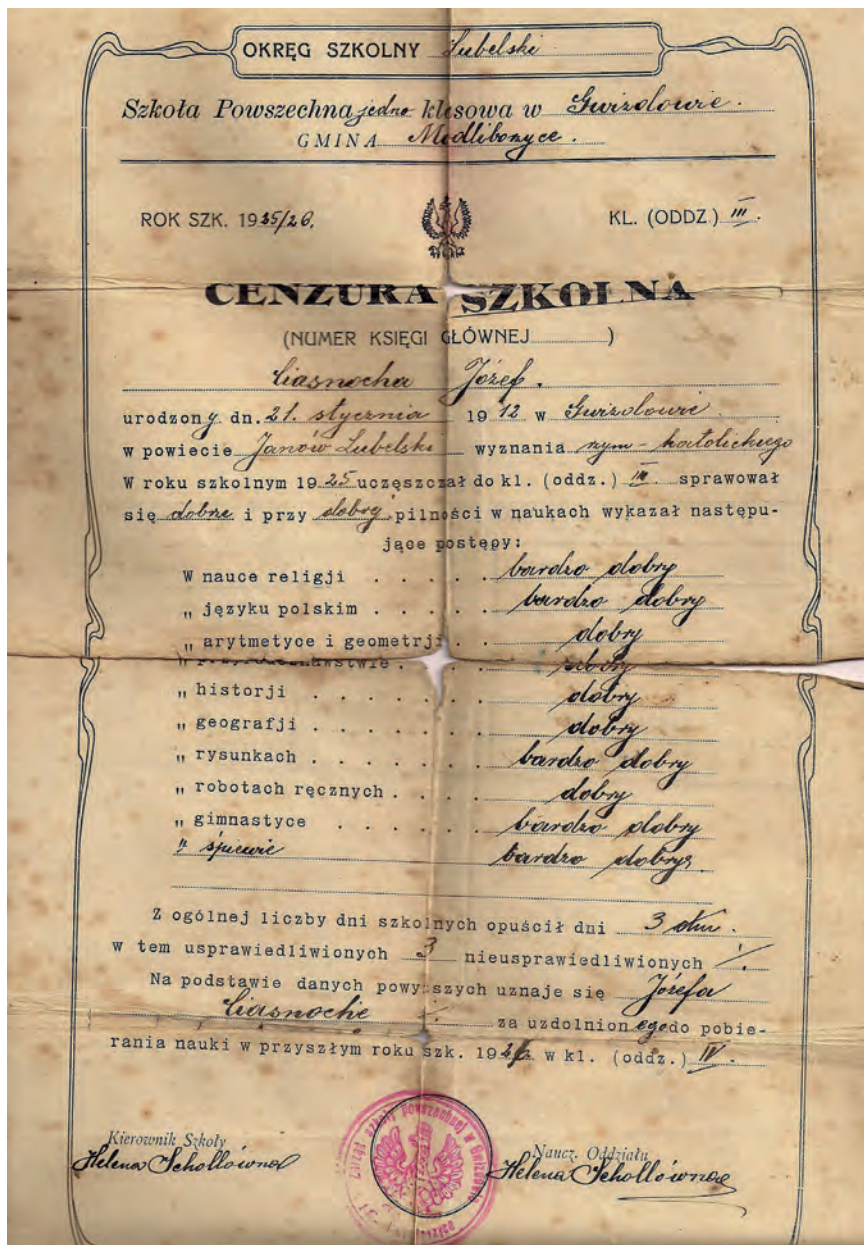 OKRĘG SZKOLNY Lubelski
Szkoła Powszechna jedno klasowa w Gwizdowie.
GMINA Modliborzyce.
ROK SZK. 1925/26. KL. (ODDZ.) III.
CENZURA SZKOLNA
(NUMER KSIĘGI GŁÓWNEJ )
Ciasnocha Józef.
urodzony dn. 21. stycznia 1912 w Gwizdowie
w powiecie Janów Lubelski wyznania rzym-katolickiego
W roku szkolnym 1925 uczęszczał do kl. (oddz.) III sprawował
się dobrze i przy dobrej pilności w naukach wykazał następu-
jące postępy:
W nauce religji . . . . . bardzo dobry
„ języku polskim . . . . bardzo dobry
„ arytmetyce i geometrji . . dobry
dobry
„ historji . . . . . . . dobry
„ geografji . . . . . . . dobry
„ rysunkach . . . . . . . bardzo dobry
„ robotach ręcznych . . . . dobry
„ gimnastyce . . . . . . bardzo dobry
" śpiewie bardzo dobry.
Z ogólnej liczby dni szkolnych opuścił dni 3 dni.
w tem usprawiedliwionych 3 nieusprawiedliwionych
Na podstawie danych powyższych uznaje się Józefa
Ciasnochę za uzdolnionego do pobie-
rania nauki w przyszłym roku szk. 192 w kl. (oddz.) IV.
Kierownik Szkoły
Helena Schollówna
Naucz. Oddziału
Helena Schollówna
Zarząd szkoły powszechnej w Gwizdowie